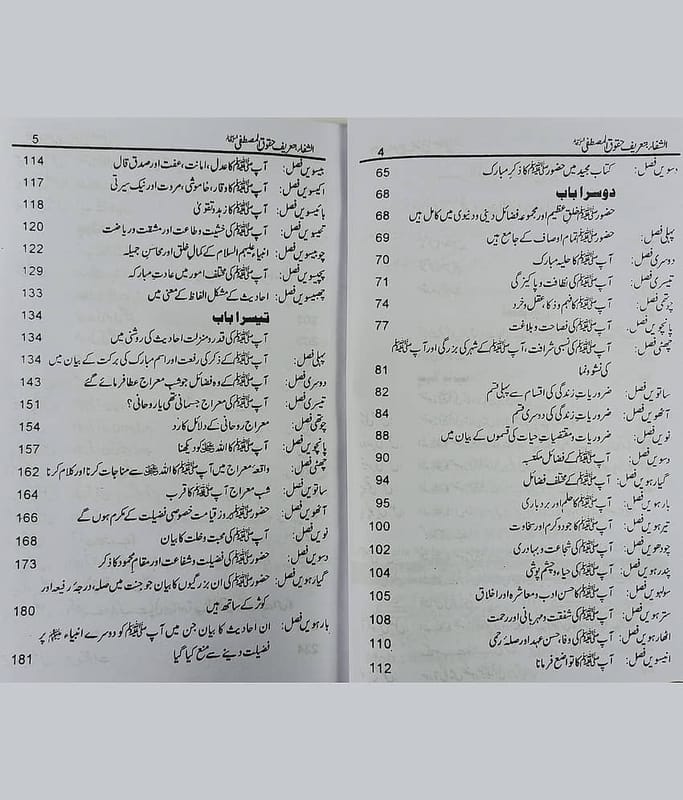 الشفاء بتعریف حقوق المصطفیٰ ﷺ 4
دسویں فصل: کتاب مجید میں حضور ﷺ کا ذکر مبارک 65
دوسرا باب 68
حضور ﷺ خلق عظیم اور مجموعہ فضائل دینی و دنیوی میں کامل ہیں 68
پہلی فصل: حضور ﷺ تمام اوصاف کے جامع ہیں 69
دوسری فصل: آپ ﷺ کا حلیہ مبارک 70
تیسری فصل: آپ ﷺ کی نظافت و پاکیزگی 71
چوتھی فصل: آپ ﷺ کا فہم و ذکا، عقل و خرد 74
پانچویں فصل: آپ ﷺ کی فصاحت و بلاغت 77
چھٹی فصل: آپ ﷺ کی نسبی شرافت، آپ ﷺ کے شہر کی بزرگی اور آپ ﷺ
کی نشوونما 81
ساتویں فصل: ضروریات زندگی کی اقسام سے پہلی قسم 82
آٹھویں فصل: ضروریات زندگی کی دوسری قسم 84
نویں فصل: ضروریات و مقتضیات حیات کی قسموں کے بیان میں 88
دسویں فصل: آپ ﷺ کے فضائل مکتسبہ 90
گیارہویں فصل: آپ ﷺ کے مختلف فضائل 94
بارہویں فصل: آپ ﷺ کا حلم اور بردباری 95
تیرہویں فصل: آپ ﷺ کا جود و کرم اور سخاوت 100
چودھویں فصل: آپ ﷺ کی شجاعت و بہادری 102
پندرہویں فصل: آپ ﷺ کی حیاء و چشم پوشی 104
سولہویں فصل: آپ ﷺ کا حسن ادب و معاشرہ اور اخلاق 105
سترہویں فصل: آپ ﷺ کی شفقت و مہربانی اور رحمت 108
اٹھارہویں فصل: آپ ﷺ کی وفا، حسن عہد اور صلہ رحمی 110
انیسویں فصل: آپ ﷺ کا تواضع فرمانا 112
الشفاء بتعریف حقوق المصطفیٰ ﷺ 5
بیسویں فصل: آپ ﷺ کا عدل، امانت، عفت اور صدق قال 114
اکیسویں فصل: آپ ﷺ کا وقار، خاموشی، مروت اور نیک سیرتی 117
بائیسویں فصل: آپ ﷺ کا زہد و تقویٰ 118
تیئسویں فصل: آپ ﷺ کی خشیت و طاعت اور مشقت و ریاضت 120
چوبیسویں فصل: انبیاء علیہم السلام کے کمال خلق اور محاسن جمیلہ 122
پچیسویں فصل: آپ ﷺ کی مختلف امور میں عادت مبارکہ 129
چھبیسویں فصل: احادیث کے مشکل الفاظ کے معنی میں 133
تیسرا باب 134
آپ ﷺ کی قدر و منزلت احادیث کی روشنی میں 134
پہلی فصل: آپ ﷺ کے ذکر کی رفعت اور اسم مبارک کی برکت کے بیان میں 134
دوسری فصل: آپ ﷺ کے وہ فضائل جو شب معراج عطا فرمائے گئے 143
تیسری فصل: آپ ﷺ کی معراج جسمانی تھی یا روحانی؟ 151
چوتھی فصل: معراج روحانی کے دلائل کا رد 154
پانچویں فصل: آپ ﷺ کا اللہ کو دیکھنا 157
چھٹی فصل: واقعۂ معراج میں آپ ﷺ کا اللہ سے مناجات کرنا اور کلام کرنا 162
ساتویں فصل: شب معراج آپ ﷺ کا قرب 164
آٹھویں فصل: حضور ﷺ بروز قیامت خصوصی فضیلت کے مکرم ہوں گے 166
نویں فصل: آپ ﷺ کی محبت و خلت کا بیان 168
دسویں فصل: حضور ﷺ کی فضیلت و شفاعت اور مقام محمود کا ذکر 173
گیارہویں فصل: حضور ﷺ کی ان بزرگیوں کا بیان جو جنت میں صلہ، درجۂ رفیعہ اور
کوثر کے ساتھ ہیں 180
بارہویں فصل: ان احادیث کا بیان جن میں آپ ﷺ کو دوسرے انبیاء پر
فضیلت دینے سے منع کیا گیا 181